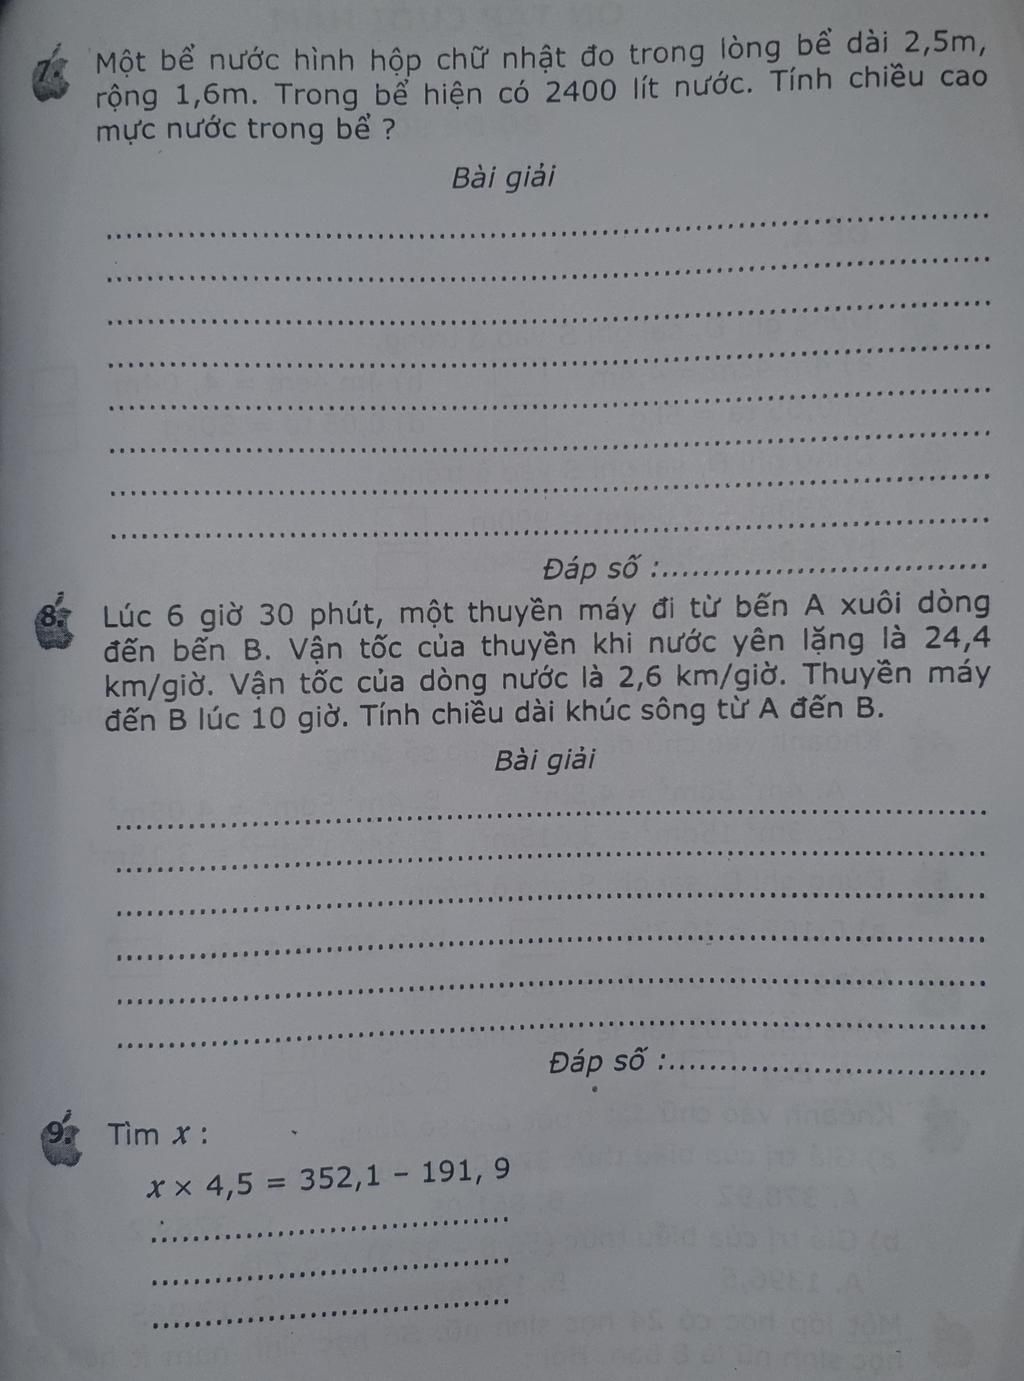 7. Một bể nước hình hộp chữ nhật đo trong lòng bể dài 2,5m,
rộng 1,6m. Trong bể hiện có 2400 lít nước. Tính chiều cao
mực nước trong bể ?
Bài giải
Đáp số :
8. Lúc 6 giờ 30 phút, một thuyền máy đi từ bến A xuôi dòng
đến bến B. Vận tốc của thuyền khi nước yên lặng là 24,4
km/giờ. Vận tốc của dòng nước là 2,6 km/giờ. Thuyền máy
đến B lúc 10 giờ. Tính chiều dài khúc sông từ A đến B.
Bài giải
Đáp số :
9. Tìm x :
x × 4,5 = 352,1 – 191, 9